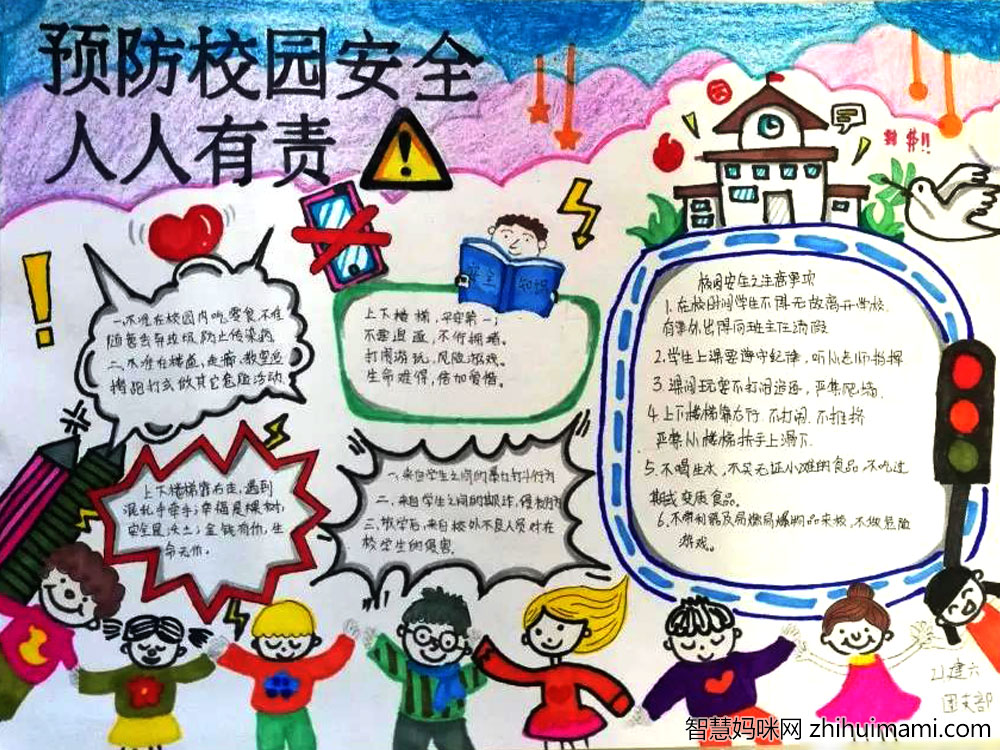 预防校园安全
人人有责
一.不准在校园内吃零食不准
随意丢弃垃圾,防止传染病
二.不准在楼道,走廊,教室追
拥跑打或做其它危险活动
上下楼梯,平安第一;
不要追逐,不作拥堵.
打闹游玩,风险游戏.
生命难得,倍加爱惜.
安全
知识
校园安全之注意事项
1.在校时间学生不得无故离开学校.
有事外出得向班主任请假
2.学生上课要遵守纪律,听从老师指挥
3.课间玩耍不打闹追逐,严禁爬墙.
4.上下楼梯靠右行.不打闹.不推挤
严禁从楼梯扶手上滑下.
5.不喝生水,不买无证小摊的食品.不吃过
期或变质食品.
6.不带利器及易燃易爆物品来校,不做危险
游戏。
上下楼梯靠右走,遇到
混乱手牵手;幸福是棵树,
安全是沃土;金钱有价,生
命无价.
一.来自学生之间的暴力打斗行为
二.来自学生之间的欺诈,侵犯行为
三.放学后,来自校外不良人员对在
校学生的侵害.
21建六
团支部
智慧妈咪网 zhihuimami.com